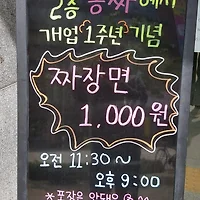 2층 홍짜에서
개업 1주년 기념
짜장면
1,000원
오전 11:30~
오후 9:00
※포장은 안돼요